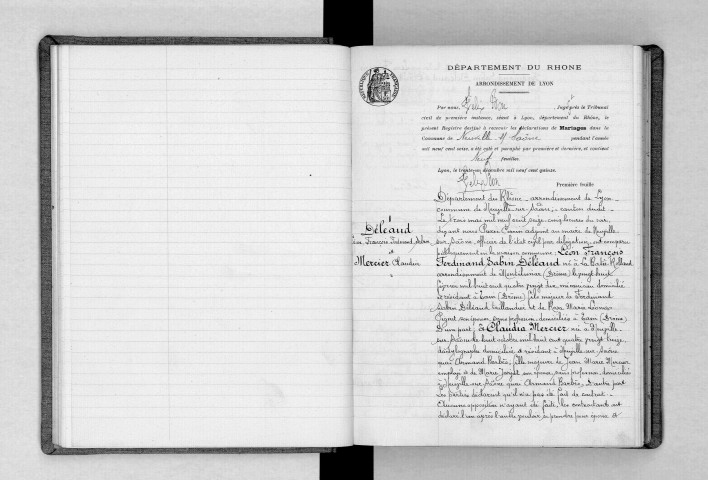 DÉPARTEMENT DU RHONE
ARRONDISSEMENT DE LYON
Par nous, Félix , Juge près le Tribunal
civil de première instance, séant à Lyon, département du Rhône, le
présent Registre destiné à recevoir les déclarations de Mariages dans la
Commune de Neuville s/ Saône pendant l'année
mil neuf cent seize, a été coté et paraphé par première et dernière, et contient
Neuf feuilles.
Lyon, le trente-un décembre mil neuf cent quinze.
Félix
Première feuille
1
Déléaud
Léon François Ferdinand Sabin
et
Mercier Claudia
Département du Rhône - arrondissement de Lyon -
commune de Neuville-sur-Saône - canton dudit -
Le trois mai mil neuf cent seize, cinq heures du soir,
devant nous Pierre adjoint au maire de Neuville
sur Saône, officier de l'état civil par délégation, ont comparu
publiquement en la maison commune : Léon François
Ferdinand Sabin Déléaud né à La Batie Rolland
arrondissement de Montélimar (Drôme) le vingt huit
février mil huit cent quatre vingt dix domicilié
et résidant à (Drôme) fils majeur de Ferdinand
Sabin Déléaud et de Rose Marie
son épouse, sans profession, domiciliés à (Drôme)
D'une part ; Et Claudia Mercier née à Neuville
sur Saône le huit octobre mil huit cent quatre vingt treize
domiciliée et résidant à Neuville sur Saône
quai Armand Barbès, fille majeure de Jean Marie Mercier
employé et de Marie son épouse, sans profession, domiciliés
à Neuville sur Saône quai Armand Barbès, D'autre part
Les parties déclarent qu'il n'a pas été fait de contrat -
Aucune opposition n'ayant été faite, les contractants ont
déclaré l'un après l'autre vouloir se prendre pour époux et